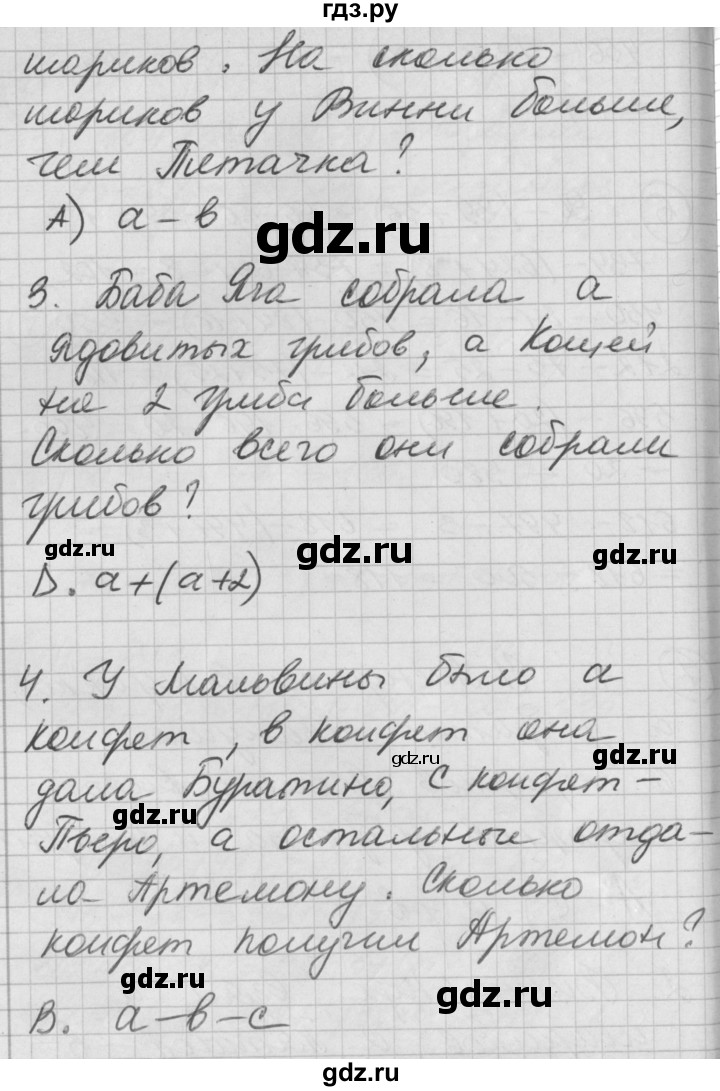 гдз.ру
шариков. На сколько
шариков у Винни больше,
чем Пятачка?
А) а-в
gdz.ru
3. Баба Яга собрала а
ядовитых грибов, а Кощей
на 2 гриба больше.
Сколько всего они собрали
грибов?
gdz.ru
gdz.ru
gdz.ru
D. а+(а+2)
4. У Мальвины было а
конфет, в конфет она
gdz.ru
gdz.ru
дала Буратино, с конфет-
gdz.ru
Пьеро, а остальные отда-
ла Артемону. Сколько
конфет получил Артемон?
gdz.ru
gdz.ru
В. а-в-с
gdz.ru